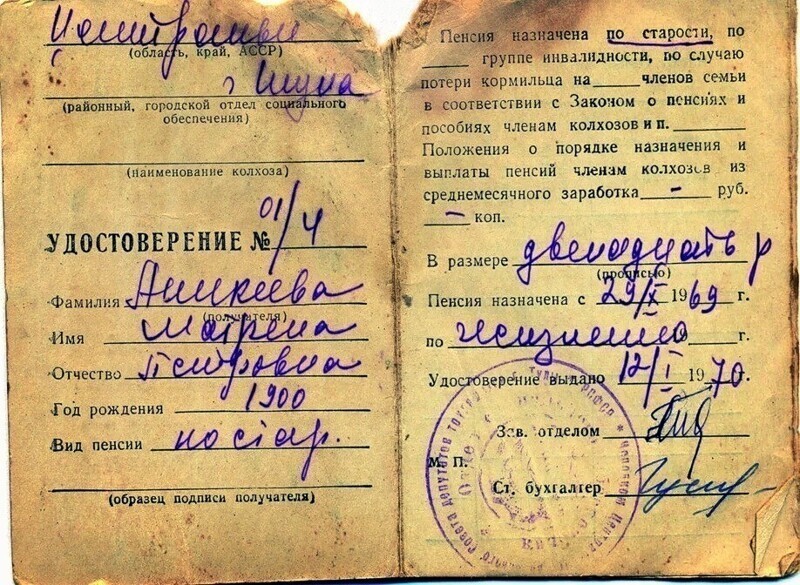 (область, край, АССР)
(районный, городской отдел социального
обеспечения)
(наименование колхоза)
УДОСТОВЕРЕНИЕ № 01/4
Фамилия Аникеева
(получателя)
Имя Матрена
Отчество Петровна
Год рождения 1900
Вид пенсии по стар.
(образец подписи получателя)
Пенсия назначена по старости, по
группе инвалидности, по случаю
потери кормильца на членов семьи
в соответствии с Законом о пенсиях и
пособиях членам колхозов и п.
Положения о порядке назначения и
выплаты пенсий членам колхозов из
среднемесячного заработка — руб.
— коп.
В размере двенадцать р
(прописью)
Пенсия назначена с 29/X 1969 г.
по жизненно г.
Удостоверение выдано 12/I 1970 г.
Зав. отделом
М. П.
Ст. бухгалтер